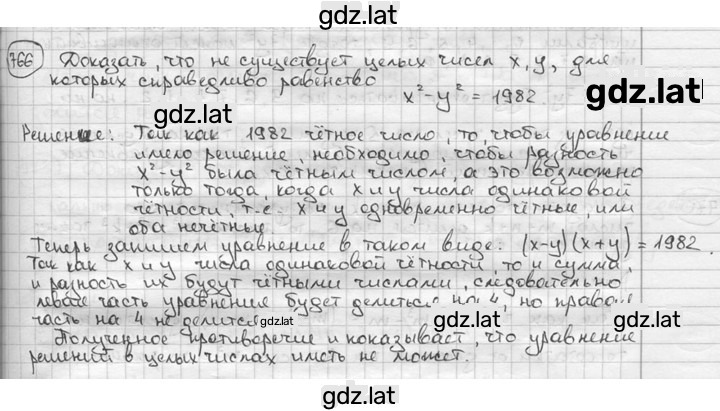 gdz.lat
766 Доказать, что не существует целых чисел x, y, для
которых справедливо равенство
x² - y² = 1982.
gdz.lat
Решение: Так как 1982 чётное число, то, чтобы уравнение
имело решение, необходимо, чтобы разность
x² - y² была чётным числом, а это возможно
только тогда, когда x и y числа одинаковой
чётности, т.е. x и y одновременно чётные, или
оба нечётные.
Теперь запишем уравнение в таком виде: (x-y)(x+y) = 1982.
Так как x и y числа одинаковой чётности, то и сумма,
и разность их будут чётными числами, следовательно
левая часть уравнения будет делиться на 4, но правая
часть на 4 не делится.
gdz.lat
Полученное противоречие и показывает, что уравнение
решений в целых числах иметь не может.
gdz.lat